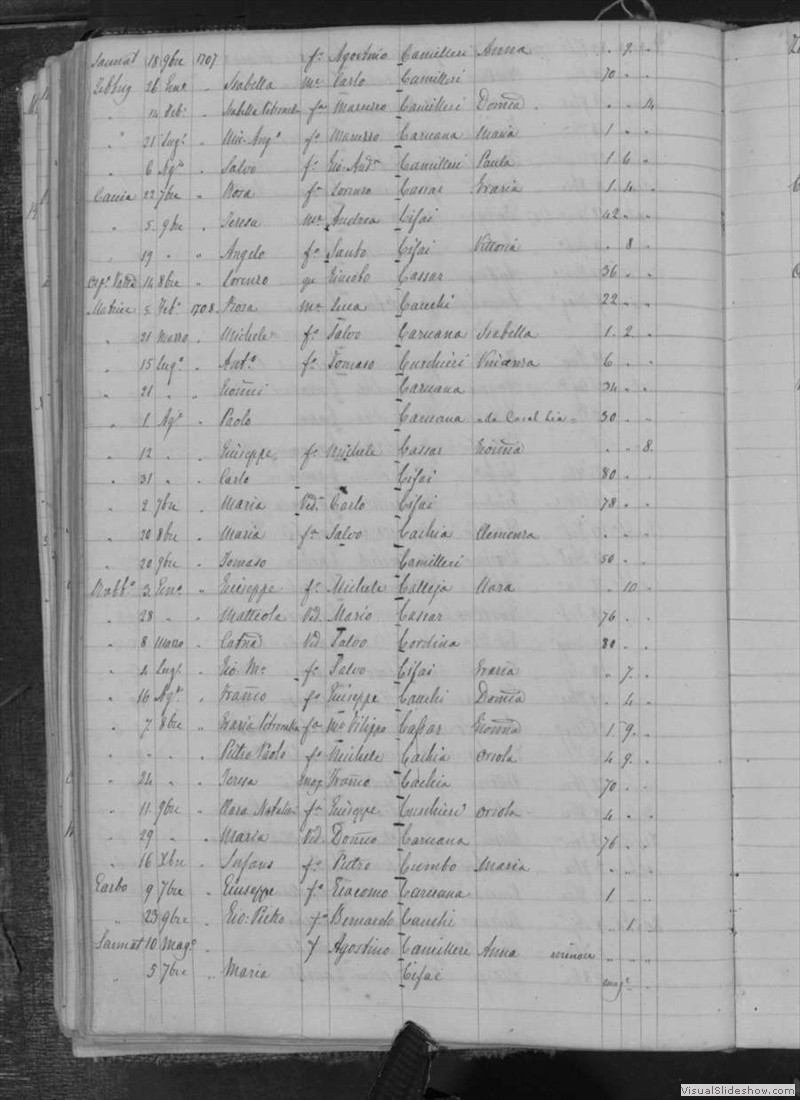 Sannat 18 9bre 1707 fa Agostino Camilleri Anna " 9 "
Zebbug 26 Enno " Isabella me Carlo Camilleri 70 " "
" 14 Feb: " Isabella fa Maruzzo Camilleri Domca " " 14
" 21 Lugo " Mic. Ango fo Maruzzo Caruana Maria 1 " "
" 6 Ago " Salvo fo Gio. Anda Camilleri Paula 1 6 "
Caccia 22 7bre " Rosa fa Lorenzo Cassar Grazia 1 4 "
" 5 9bre " Teresa me Andrea Cifai 42 " "
" 19 " " Angelo fo Santo Cifai Vittoria " 8 "
14 8bre " Lorenzo qm Giacobo Cassar 36 " "
Matrice 5 Feb: 1708 Rosa me Luca Caruchi 22 " "
" 21 Marzo " Michele fo Salvo Caruana Isabella 1 2 "
" 15 Lugo " Anto fo Tomaso Curchieri Vincenza 6 " "
" 21 " " Caruana 34 " "
" 1 Ago " Paolo Caruana = da Casal Lia = 30 " "
" 12 " " Giuseppe fo Michele Cassar " " 8
" 31 " " Carlo Cifai 80 " "
" 2 7bre " Maria Vid. Carlo Cifai 78 " "
" 20 8bre " Maria fa Salvo Cachia Clemenza
" 20 9bre " Tomaso Camilleri 50 " "
Rabbo 3 Enno " Giuseppe fo Michele Calleja Clara " 10 "
" 28 " " Matteola Vid. Mario Cassar 76 " "
" 8 Marzo " Catna Vid Salvo Cordina 80 " "
" 4 Lugl " Gio Ma fo Salvo Cifai Grazia " 7 "
" 16 Ago " Franco fo Giuseppe Cauchi Domca " 4 "
" 7 8bre " Grazia fa Mo Filippo Cassar 1 9 "
" " " Pietro Paolo fo Michele Cachia Oriola 4 9 "
" 24 " " Teresa mog Franco Cachia 70 " "
" 11 9bre " Clara Natalia fa Giuseppe Curchieri Oriola 4 "
" 29 " " Maria Vid Domco Caruana 76 " "
" 16 Xbre " Infans fo Pietro Cumbo Maria " " "
Garbo 9 7bre " Giuseppe fo Giacomo Caruana 1 " "
" 23 9bre " Gio: Pietro fo Bernardo Cauchi " 1 "
Sannat 10 Mago " f Agostino Camilleri Anna minore " " "
" 5 7bre " Maria Cifai mage
VisualSlideshow.com